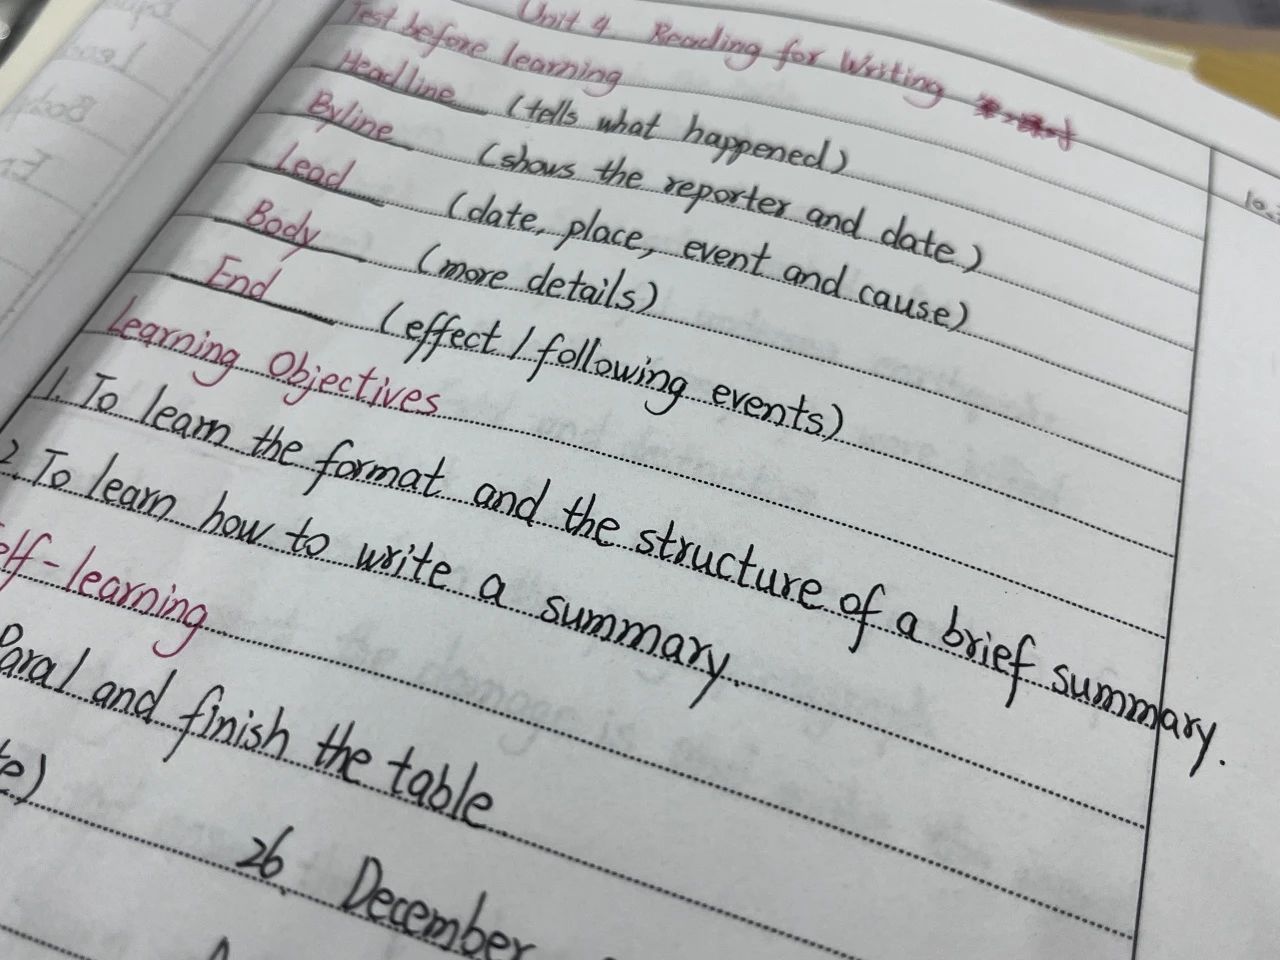 Unit 4 Reading for Writing
Test before learning
Headline (tells what happened)
Byline (shows the reporter and date)
Lead (date, place, event and cause)
Body (more details)
End (effect / following events)
Learning Objectives
1. To learn the format and the structure of a brief summary.
2. To learn how to write a summary.
elf-learning
Para1 and finish the table
te)
26 December